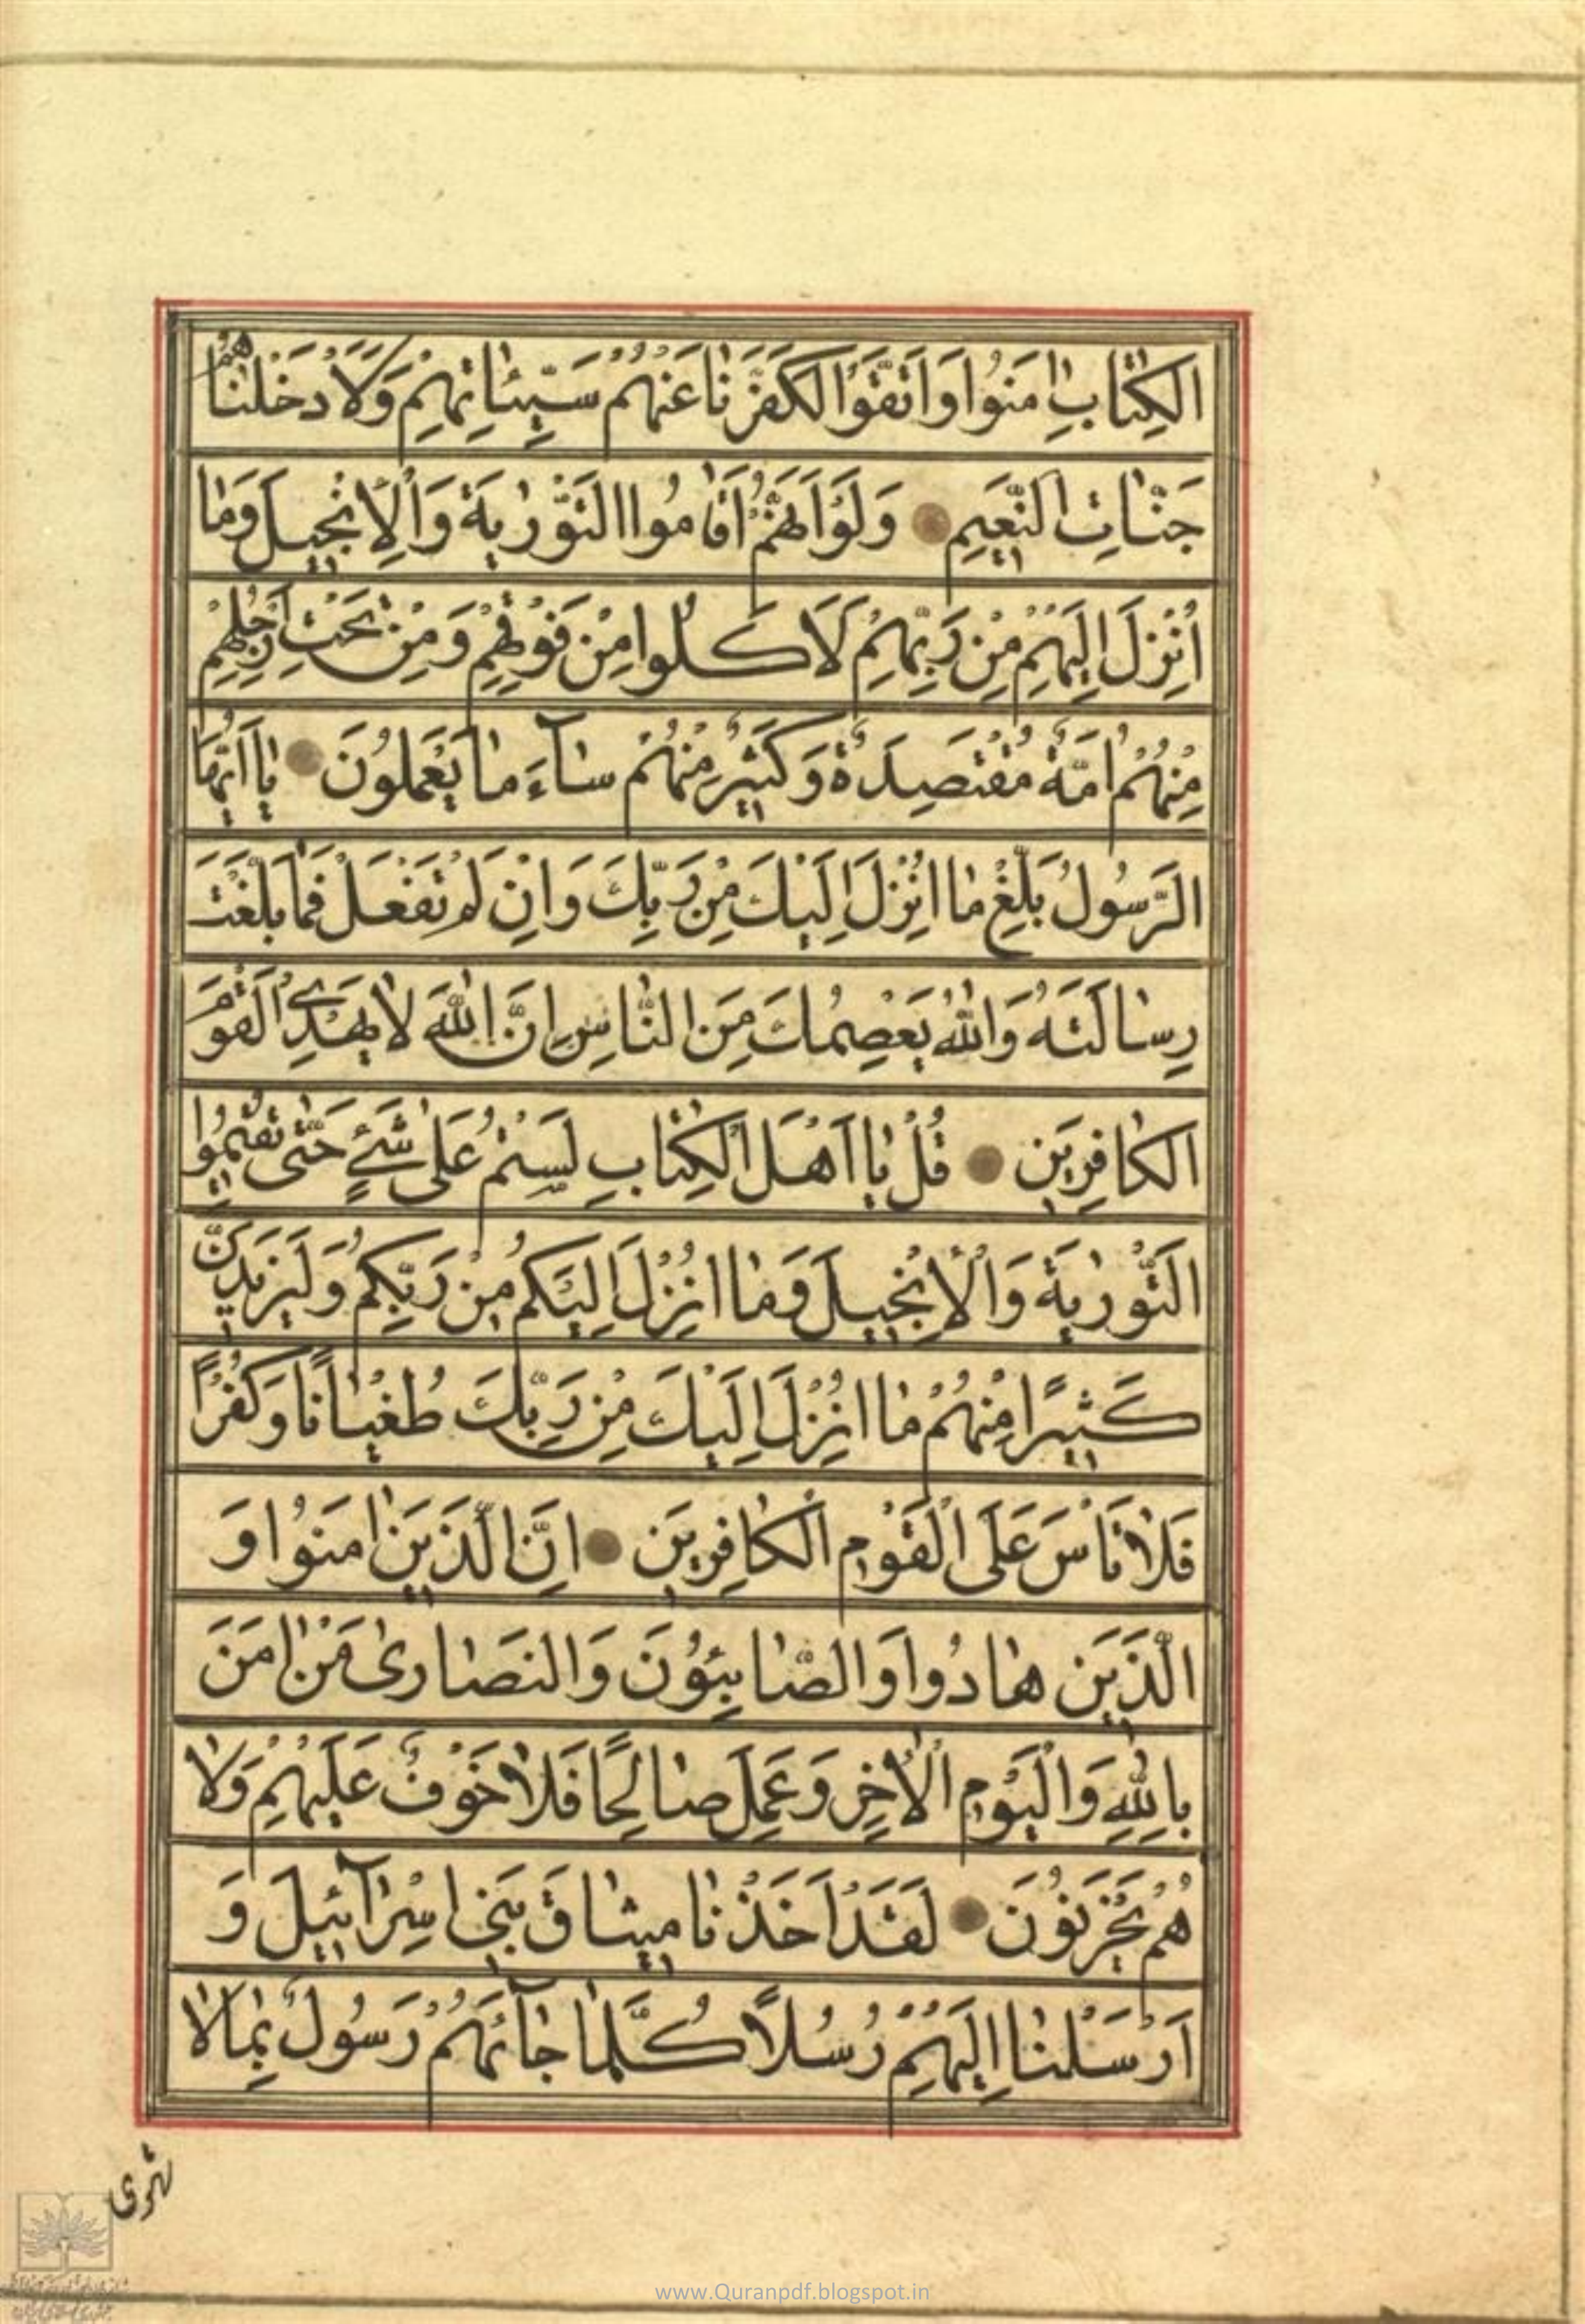 الكِتٰابِ اٰمَنُوا وَاتَّقَوْا لَكَفَّرْنٰا عَنْهُمْ سَيِّئٰاتِهِمْ وَلَاَدْخَلْنٰاهُمْ
جَنّٰاتِ النَّعيمِ وَلَوْ اَنَّهُمْ اَقٰامُوا التَّوْرٰيةَ وَالْاِنْجيلَ وَمٰا
اُنْزِلَ اِلَيْهِمْ مِنْ رَبِّهِمْ لَاَكَلُوا مِنْ فَوْقِهِمْ وَمِنْ تَحْتِ اَرْجُلِهِمْ
مِنْهُمْ اُمَّةٌ مُقْتَصِدَةٌ وَكَثيرٌ مِنْهُمْ سٰآءَ مٰا يَعْمَلُونَ يٰا اَيُّهَا
الرَّسُولُ بَلِّغْ مٰا اُنْزِلَ اِلَيْكَ مِنْ رَبِّكَ وَاِنْ لَمْ تَفْعَلْ فَمٰا بَلَّغْتَ
رِسٰالَتَهُ وَاللّٰهُ يَعْصِمُكَ مِنَ النّٰاسِ اِنَّ اللّٰهَ لٰا يَهْدِي الْقَوْمَ
الكٰافِرينَ قُلْ يٰا اَهْلَ الْكِتٰابِ لَسْتُمْ عَلٰى شَيْءٍ حَتّٰى تُقيمُوا
التَّوْرٰيةَ وَالْاِنْجيلَ وَمٰا اُنْزِلَ اِلَيْكُمْ مِنْ رَبِّكُمْ وَلَيَزيدَنَّ
كَثيرًا مِنْهُمْ مٰا اُنْزِلَ اِلَيْكَ مِنْ رَبِّكَ طُغْيٰانًا وَكُفْرًا
فَلٰا تَاْسَ عَلَى الْقَوْمِ الْكٰافِرينَ اِنَّ الَّذينَ اٰمَنُوا وَ
الَّذينَ هٰادُوا وَالصّٰابِئُونَ وَالنصٰارىٰ مَنْ اٰمَنَ
بِاللّٰهِ وَالْيَوْمِ الْاٰخِرِ وَعَمِلَ صٰالِحًا فَلٰا خَوْفٌ عَلَيْهِمْ وَلٰا
هُمْ يَحْزَنُونَ لَقَدْ اَخَذْنٰا ميثٰاقَ بَني اِسْرٰآئيلَ وَ
اَرْسَلْنٰا اِلَيْهِمْ رُسُلًا كُلَّمٰا جٰآئَهُمْ رَسُولٌ بِمٰا لٰا
تهوى
www.Quranpdf.blogspot.in